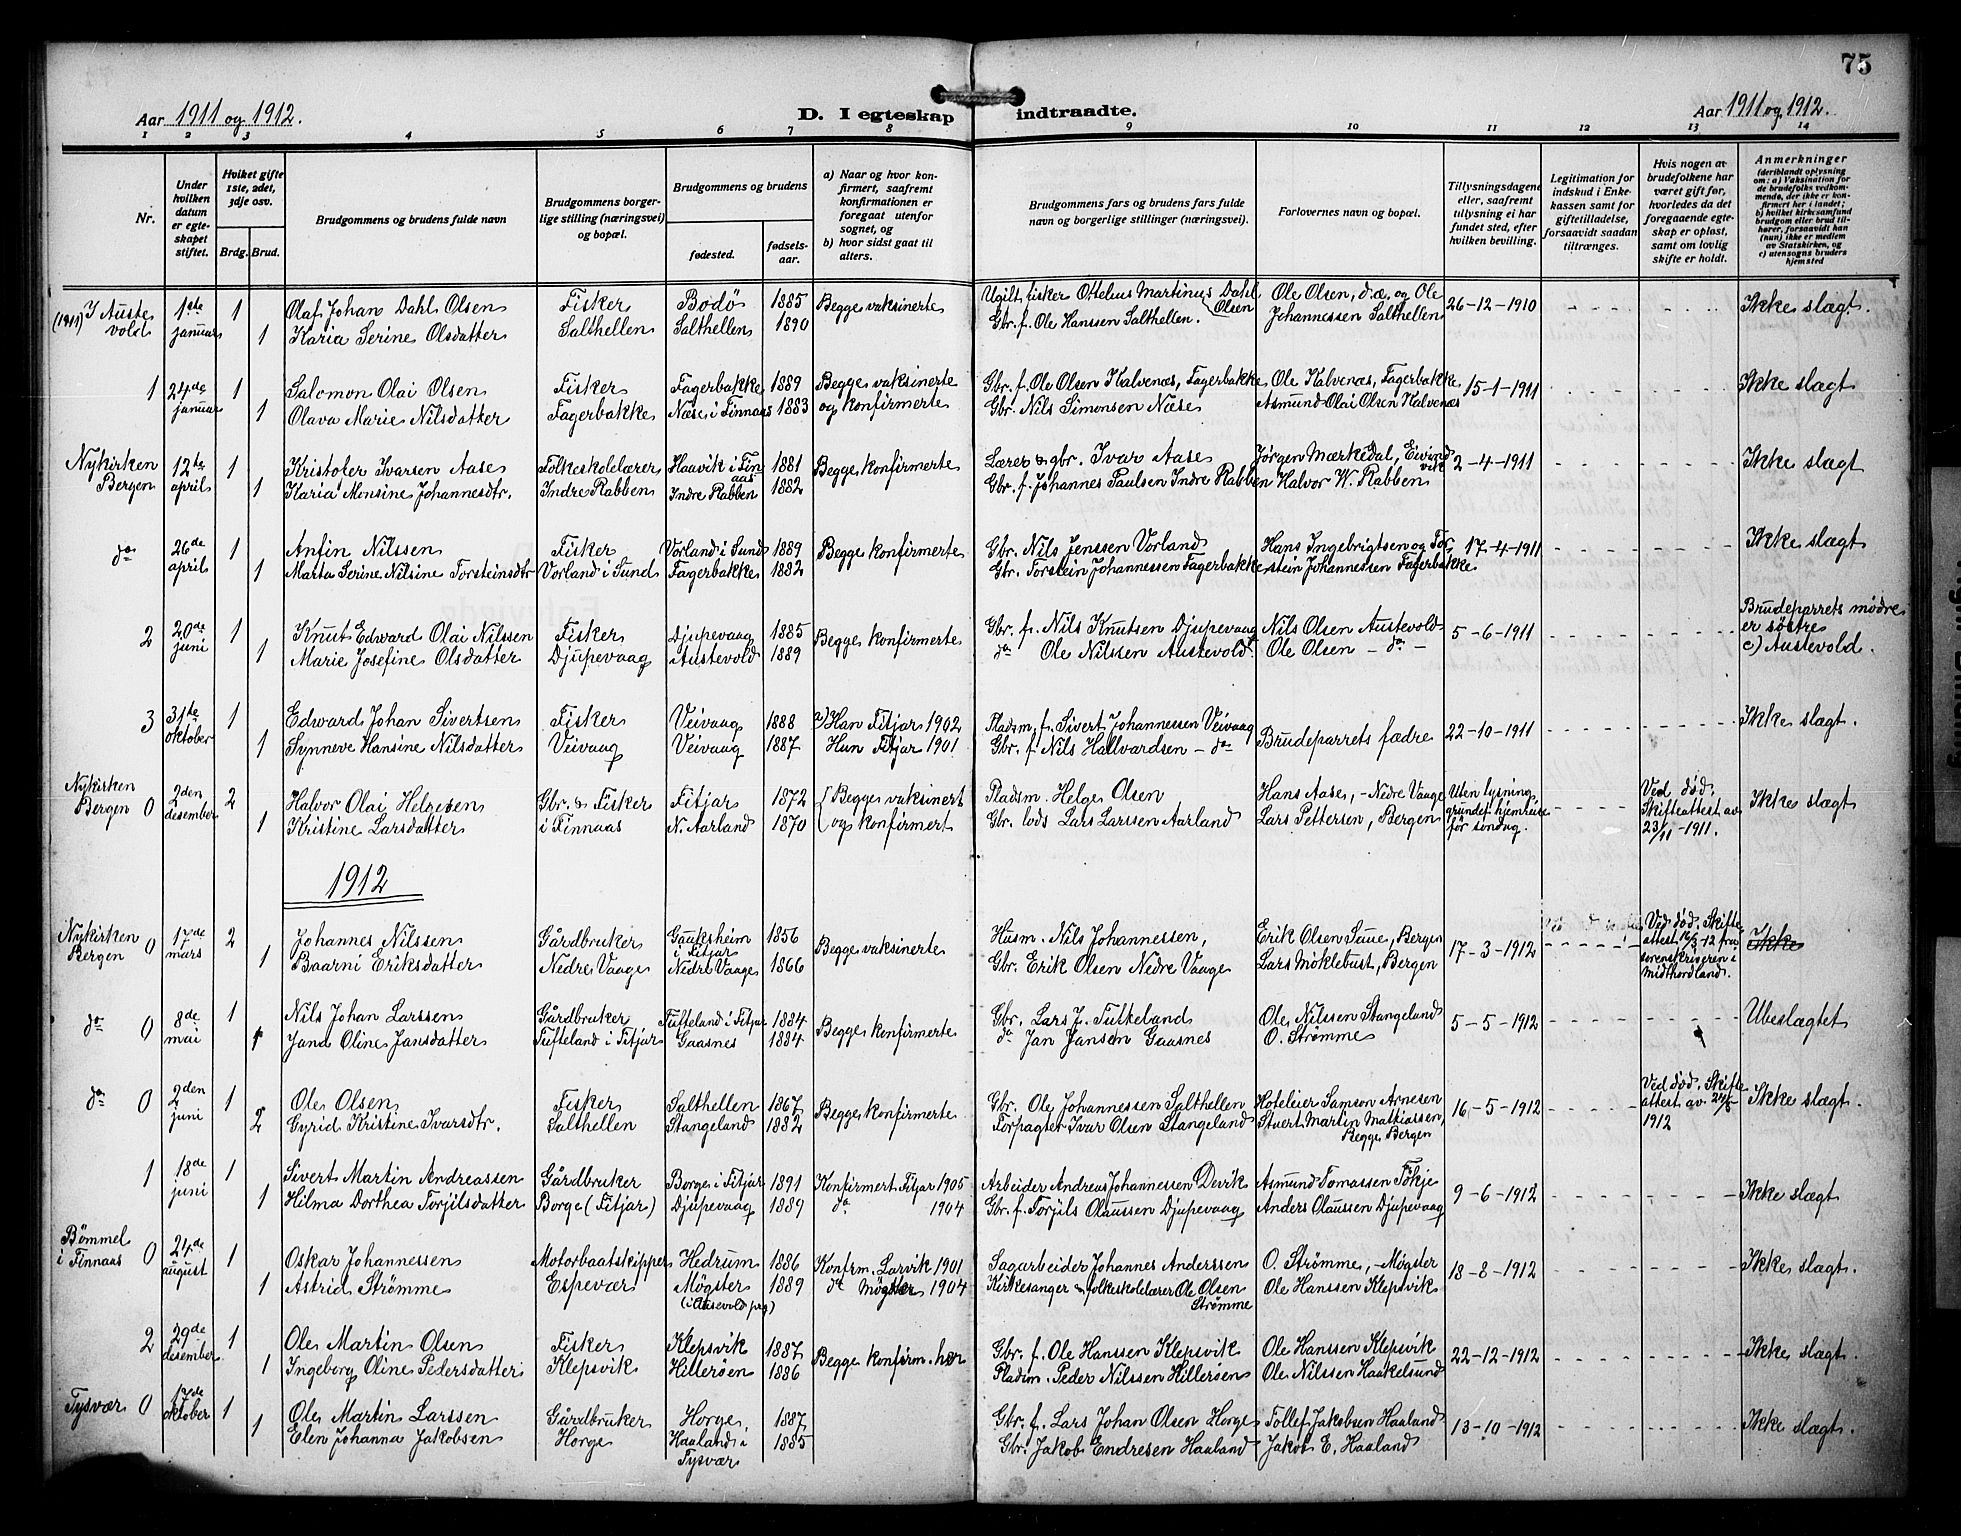 75
Aar 1911 og 1912.
D. I egteskap indtraadte.
Aar 1911 og 1912.
1 2 3 4 5 6 7 8 9 10 11 12 13 14
Nr.
Under hvilken datum er egteskapet stiftet.
Hvilket gifte 1ste, 2det, 3dje osv.
Brdg. Brud.
Brudgommens og brudens fulde navn
Brudgommens borgerlige stilling (næringsvei) og bopæl.
Brudgommens og brudens
fødested.
fødselsaar.
a) Naar og hvor konfirmert, saafremt konfirmationen er foregaat utenfor sognet, og
b) hvor sidst gaat til alters.
Brudgommens fars og brudens fars fulde navn og borgerlige stillinger (næringsvei).
Forlovernes navn og bopæl.
Tillysningsdagene eller, saafremt tillysning ei har fundet sted, efter hvilken bevilling.
Legitimation for indskud i Enkekassen samt for giftetilladelse, forsaavidt saadan tiltrænges.
Hvis nogen av brudefolkene har været gift før, hvorledes da det foregaaende egteskap er opløst, samt om lovlig skifte er holdt.
Anmerkninger (deriblandt oplysning om: a) Vaksination for de brudefolks vedkommende, der ikke er konfirmert her i landet; b) hvilket kirkesamfund brudgom eller brud tilhører, forsaavidt han (hun) ikke er medlem av Statskirken, og c) utensogns bruders hjemsted
(1911) I Austevold 1ste januar 1 Olaf Johan Dahl Olsen Fisker Bodö 1885 Begge vaksinerte Ugift fisker Ottelius Martinus Dahl Olsen Ole Olsen, d.æ. og Ole 26-12-1910 Ikke slægt.
1 Karia Serine Olsdatter Salthellen Salthellen 1890 Gbr. f. Ole Hanssen Salthellen. Johannessen Salthellen
1 24de januar 1 Salomon Olai Olsen Fisker Fagerbakke 1889 Begge vaksinerte Gbr. f. Ole Olsen Kalvenæs, Fagerbakke Ole Kalvenæs, Fagerbakke 15-1-1911 Ikke slægt
1 Olava Marie Nilsdatter Fagerbakke Næse i Finnaas 1883 og konfirmerte Gbr. Nils Simonsen Næse Asmund Olai Olsen Kalvenæs
Nykirken Bergen 12te april 1 Kristofer Ivarsen Aase Folkeskolelærer Haavik i Finnaas 1881 Begge konfirmerte Lærer & gbr. Ivar Aase Jörgen Mærkedal, Eivindvik 2-4-1911 Ikke slægt
1 Karia Monsine Johannesdtr. Indre Rabben Indre Rabben 1882 Gbr. f. Johannes Paulsen Indre Rabben Halvor W. Rabben
do 26de april 1 Anfin Nilssen Fisker Vorland i Sund 1889 Begge konfirmerte Gbr. Nils Jenssen Vorland Hans Ingebrigtsen og Tor- 17-4-1911 Ikke slægt
1 Marta Serine Nilsine Torsteinsdtr Vorland i Sund Fagerbakke 1882 Gbr. Torstein Johannessen Fagerbakke stein Johannessen Fagerbakke
2 20de juni 1 Knut Edward Olai Nilssen Fisker Djupevaag 1885 Begge konfirmerte Gbr. f. Nils Knutsen Djupevaag Nils Olsen Austevold 5-6-1911 Brudeparrets mødre er søstre c) Austevold.
1 Marie Josefine Olsdatter Djupevaag Austevold 1889 do Ole Nilssen Austevold. Ole Olsen - do -
3 31te oktober 1 Edward Johan Sivertsen Fisker Veivaag 1888 a) Han Fitjar 1902 Pladsm. f. Sivert Johannessen Veivaag Brudeparrets fædre 22-10-1911 Ikke slægt.
1 Synneve Hansine Nilsdatter Veivaag Veivaag 1887 Hun Fitjar 1901 Gbr. f. Nils Hallvardsen - do
Nykirken Bergen 0 2den desember 2 Halvor Olai Helgesen Gbr. & Fisker Fitjar 1872 Begge vaksinert Pladsm. Helge Olsen Hans Aase, - Nedre Vaage Uten lysning grundet hjemreise før søndag. Ved død. Skifteattest av 23/11-1911. Ikke slægt
1 Kristine Larsdatter i Finnaas N. Aarland 1870 og konfirmert Gbr. lods Lars Larssen Aarland Lars Pettersen, Bergen
1912
Nykirken Bergen 0 17de mars 2 Johannes Nilssen Gårdbruker Gauksheim i Fitjar 1856 Begge vaksinerte Husm. Nils Johannessen, Erik Olsen Saue, Bergen 17-3-1912 Ved død. Skifteattest 16/3-12 fra sorenskriveren i Midthordland. Ikke
1 Baarni Eriksdatter Nedre Vaage Nedre Vaage 1866 Gbr. Erik Olsen Nedre Vaage Lars Möklebust, Bergen
do 0 8de mai 1 Nils Johan Larssen Gårdbruker Tufteland i Fitjar 1884 Begge konfirmerte Gbr. Lars J. Tulkeland Ole Nilssen Stangeland 5-5-1912 Ubeslægtet
1 Jana Oline Jansdatter Tufteland i Fitjar Gaasnes 1884 do Jan Jansen Gaasnes O. Strømme
do 0 2den juni 1 Ole Olsen Fisker Salthellen 1867 Begge konfirmerte Gbr. Ole Johannessen Salthellen Hoteleier Samson Arnesen 16-5-1912 Ved død. Skifteattest av 24/5 1912 Ikke slægt.
2 Gyrid Kristine Ivarsdtr. Salthellen Stangeland 1882 Forpagter Ivar Olsen Stangeland Stuert Martin Mathiassen, Begge Bergen
1 18de juni 1 Sivert Martin Andreassen Gårdbruker Borge i Fitjar 1891 Konfirmert Fitjar 1905 Arbeider Andreas Johannessen Dervik Asmund Tomassen Tökje 9-6-1912 Ikke slægt
1 Hilma Dorthea Torjilsdatter Borge (Fitjar) Djupevaag 1889 do 1904 Gbr. f. Torjils Olaussen Djupevaag Anders Olaussen Djupevaag
Bømmel i Finnaas 0 24de august 1 Oskar Johannessen Motorbaatskipper Hedrum 1886 Konfirm. Larvik 1901 Sagarbeider Johannes Anderssen O. Strømme, - Møgster 18-8-1912 Ikke slægt.
1 Astrid Strømme Espevær Møgster (i Austevold prg) 1889 do Møgster 1904 Kirkesanger & folkeskolelærer Ole Olsen Strømme Ole Hanssen Klepsvik
2 29de desember 1 Ole Martin Olsen Fisker Klepsvik 1887 Begge konfirm. her Gbr. f. Ole Hanssen Klepsvik Ole Hanssen Klepsvik 22-12-1912 Ikke slægt.
1 Ingeborg Oline Pedersdatter Klepsvik Hillerøen 1886 Pladsm. Peder Nilssen Hillerøen Ole Nilssen Haakelsund
Tysvær 0 17de oktober 1 Ole Martin Larssen Gårdbruker Horge 1887 Gbr. f. Lars Johan Olsen Horge Tollef Jakobsen Haaland 13-10-1912 Ikke slægt.
1 Elen Johanna Jakobsen Horge Haaland i Tysvær 1885 Gbr. Jakob Endresen Haaland Jakob E. Haaland